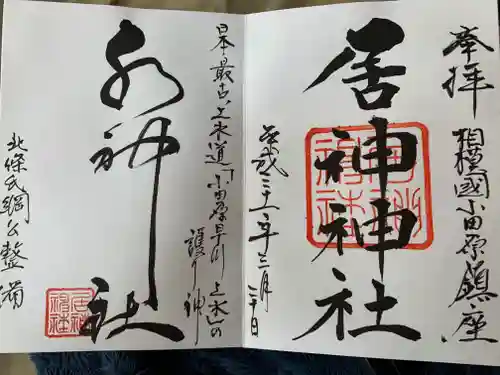 奉拝
相模國小田原鎮座
居神神社
平成三十一年三月二十日
日本最古、上水道「小田原早川上水」の
護り神
水神社
北條氏綱公整備